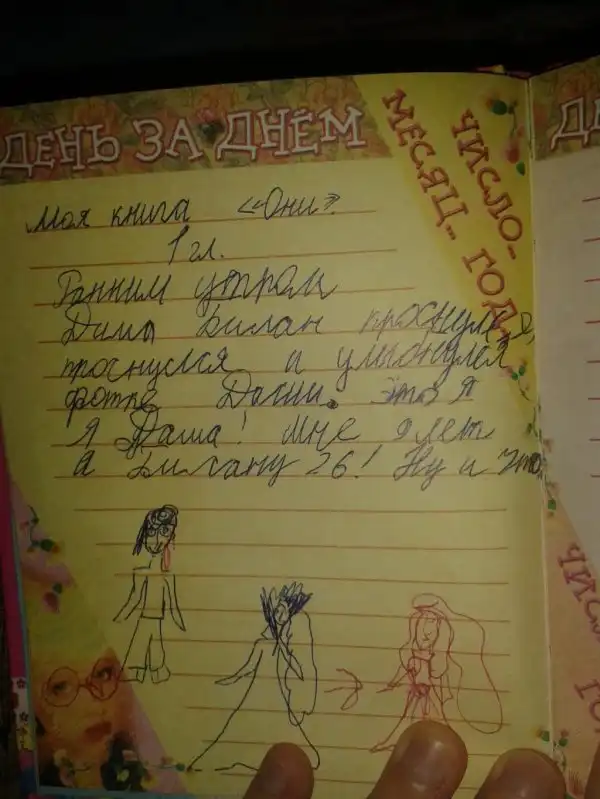 ДЕНЬ ЗА ДНЁМ
ЧИСЛО..
МЕСЯЦ.. ГОД
Моя книга «Они».
1 гл.
Ранним утром
Дима Билан проснулся,
проснулся и улыбнулся
фотке Даши. это я
я Даша! Мне 9 лет
а Билану 26! Ну и что